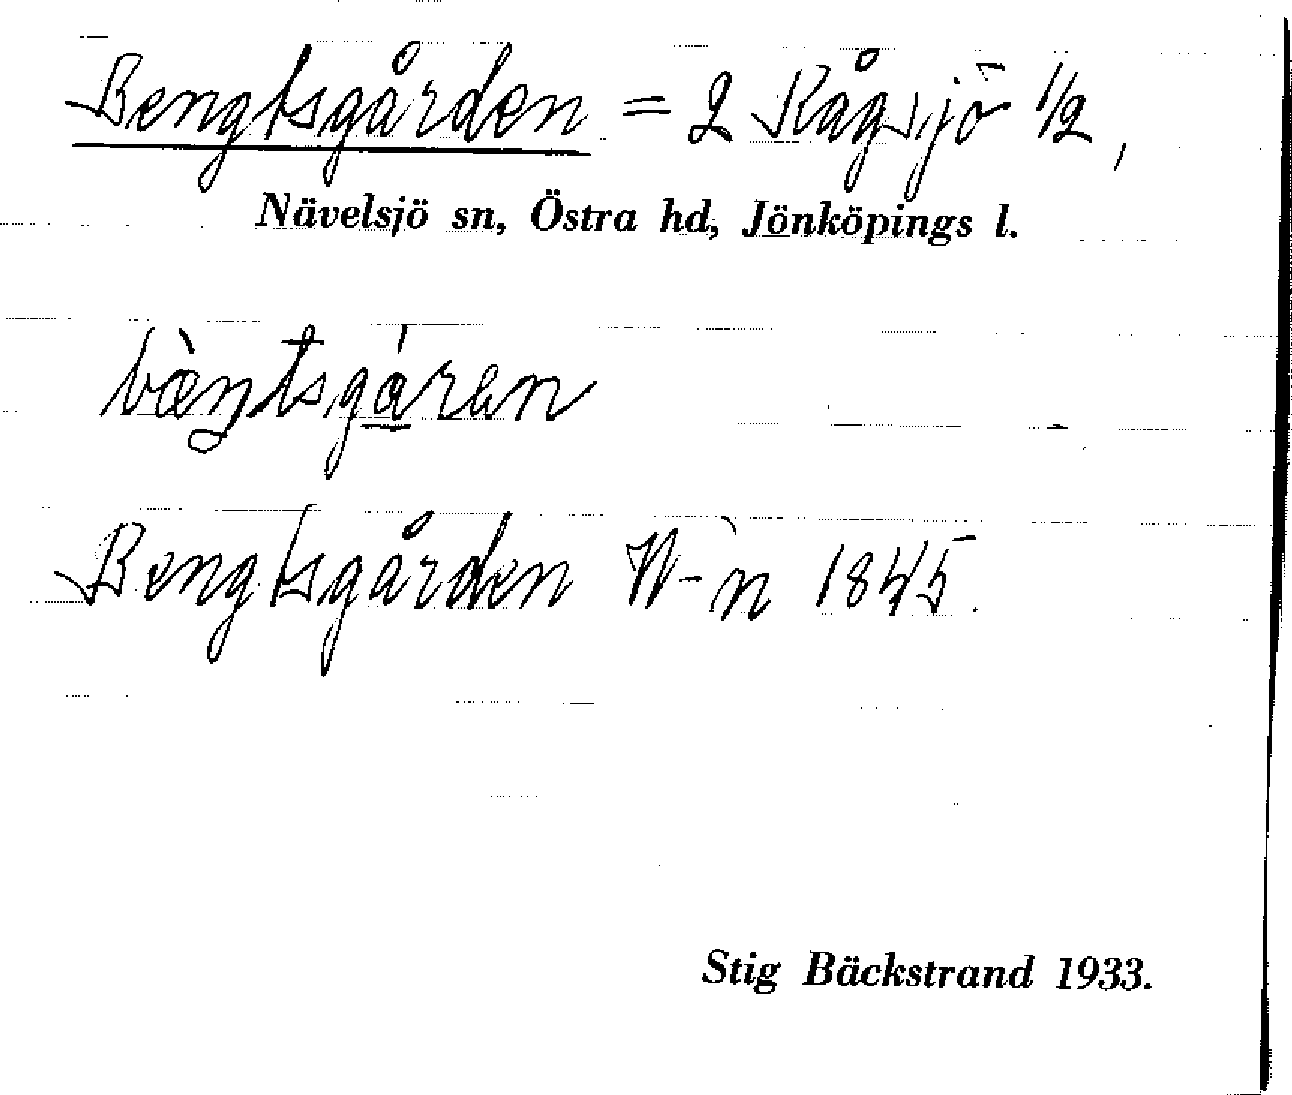 Bengtsgården = 2 Rågsjö 1/2,
Nävelsjö sn, Östra hd, Jönköpings l.
bæ̀ŋtsgá̠ren
Bengtsgården W-n 1845.
Stig Bäckstrand 1933.